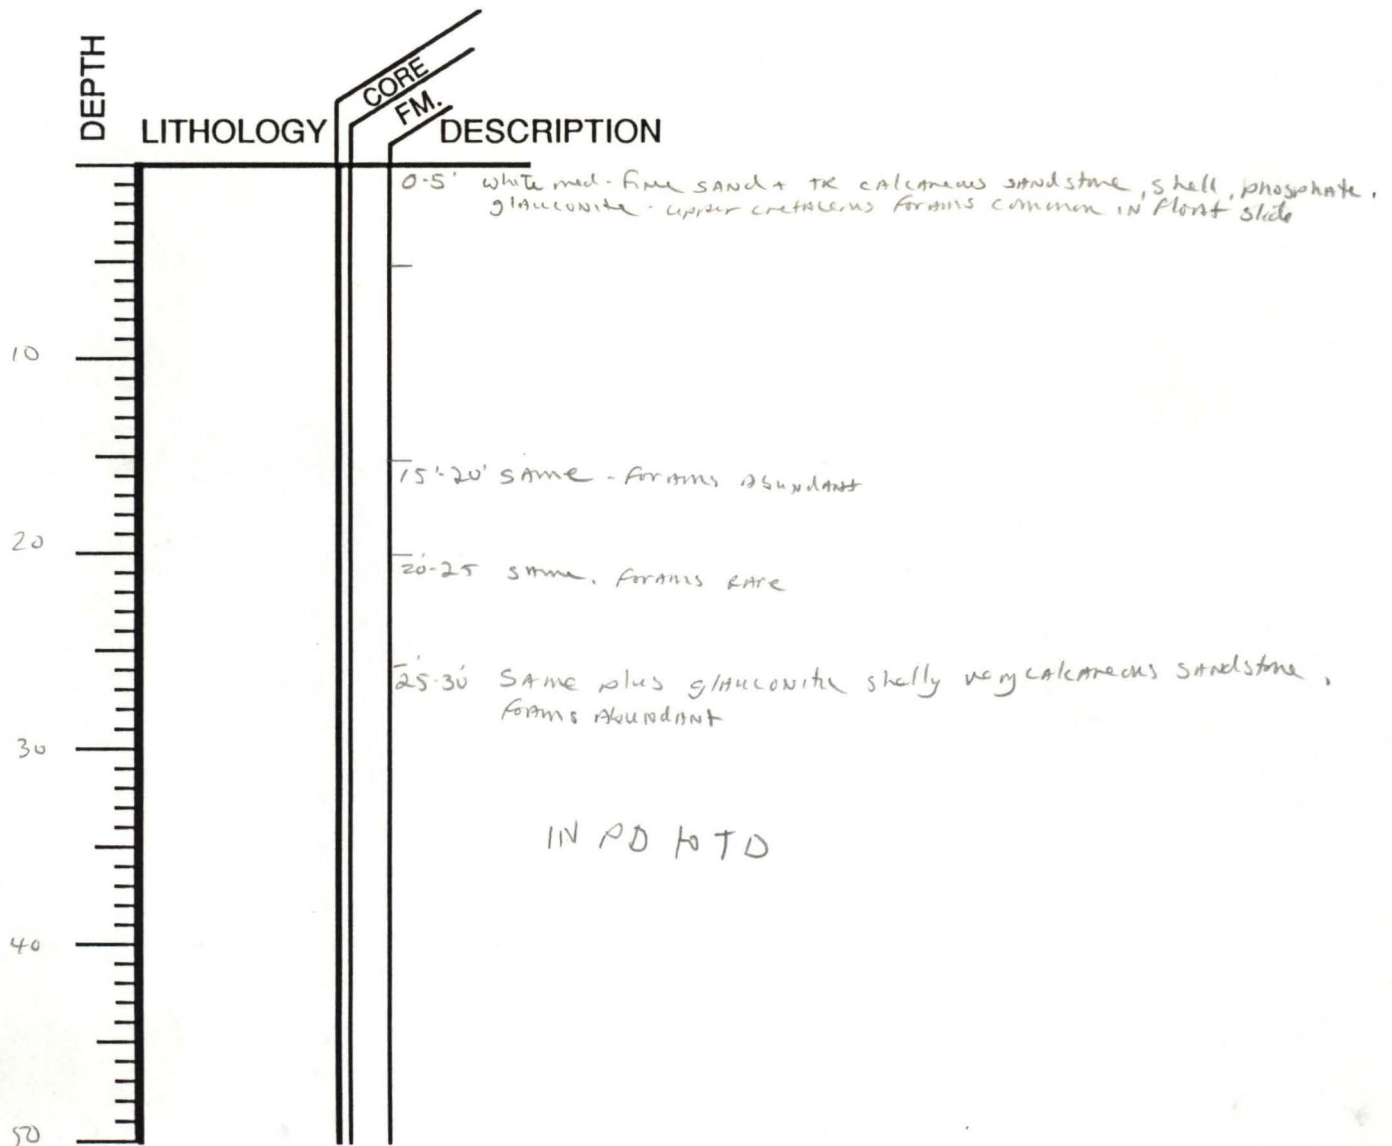 DEPTH
LITHOLOGY
CORE
FM.
DESCRIPTION
0-5' white med-fine sand + TR calcareous sandstone, shell, phosphate,
glauconite - upper cretaceous forams common in float slide
10
15'-20' same - forams abundant
20
20-25 same, forams rare
25-30 same plus glauconitic shelly very calcareous sandstone,
forams abundant
30
IN PD to TD
40
50